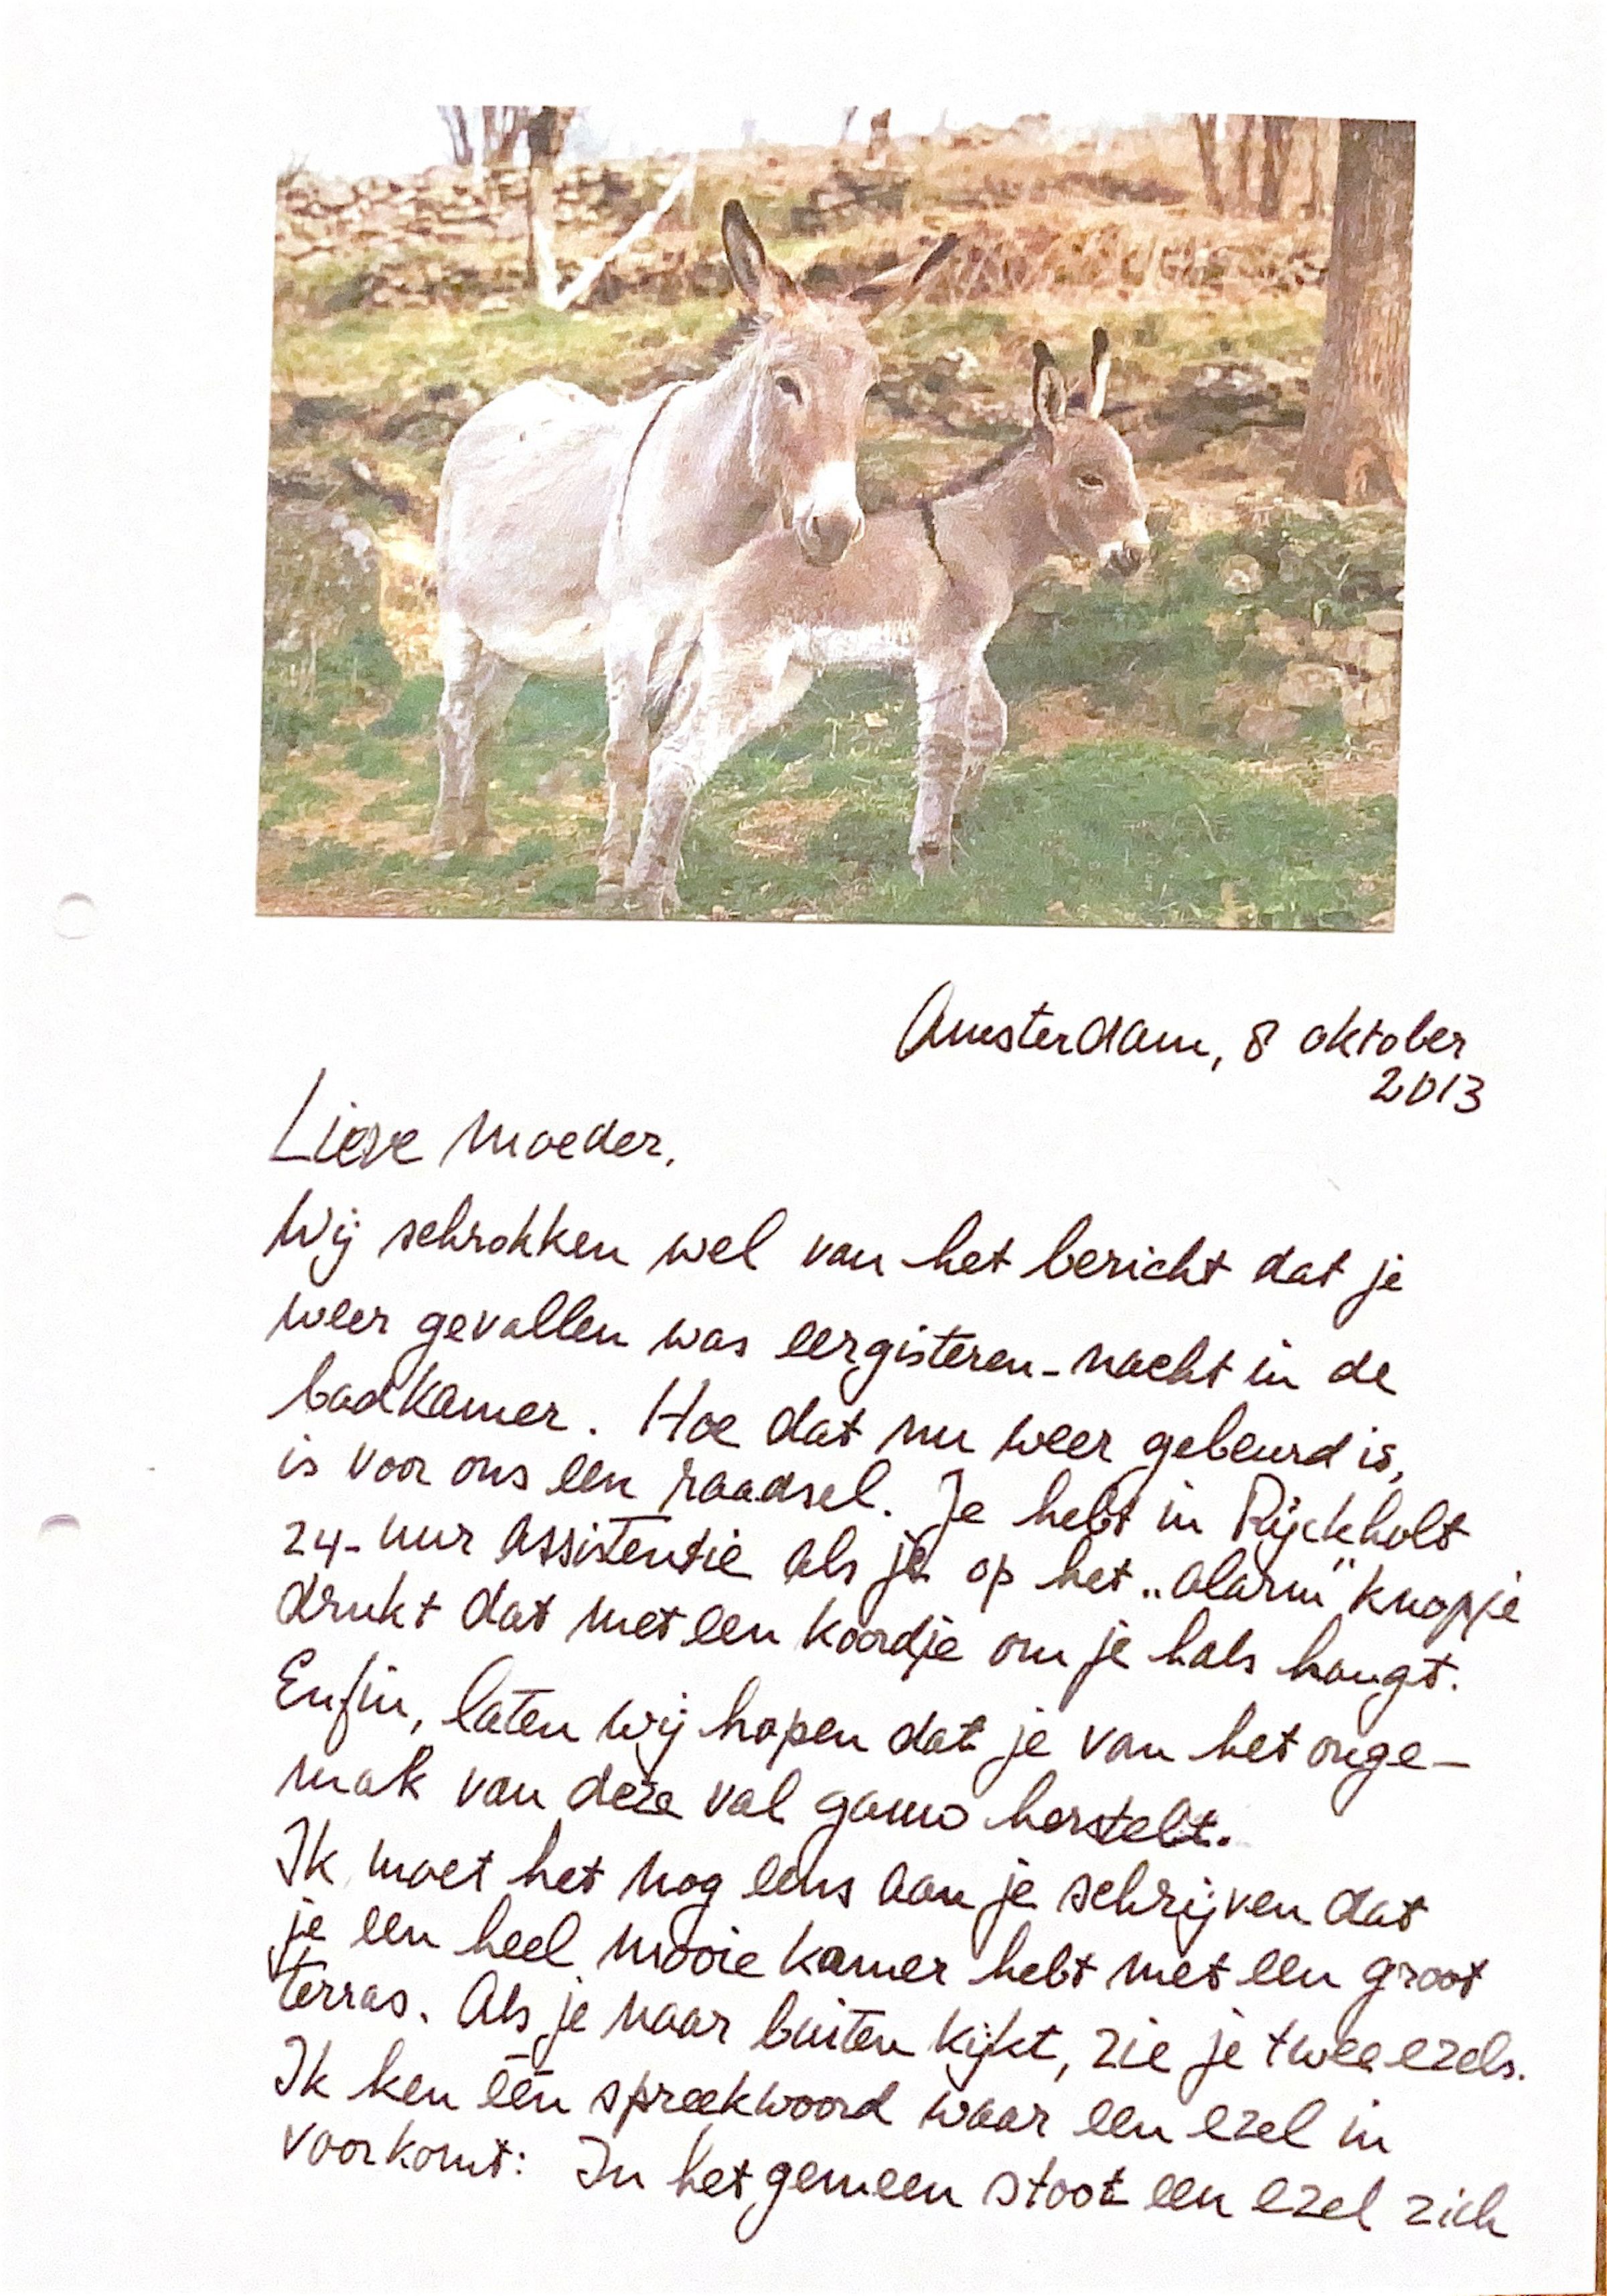 Amsterdam, 8 oktober
2013
Lieve moeder,
Wij schrokken wel van het bericht dat je
weer gevallen was eergisteren-nacht in de
badkamer. Hoe dat nu weer gebeurd is,
is voor ons een raadsel. Je hebt in Rijckholt
24-uur assistentie als je op het „alarm" knopje
drukt dat met een koordje om je hals hangt.
Enfin, laten wij hopen dat je van het onge-
mak van deze val gauw herstelt.
Ik moet het nog eens aan je schrijven dat
je een heel mooie kamer hebt met een groot
terras. Als je naar buiten kijkt, zie je twee ezels.
Ik ken één spreekwoord waar een ezel in
voorkomt: In het gemeen stoot een ezel zich